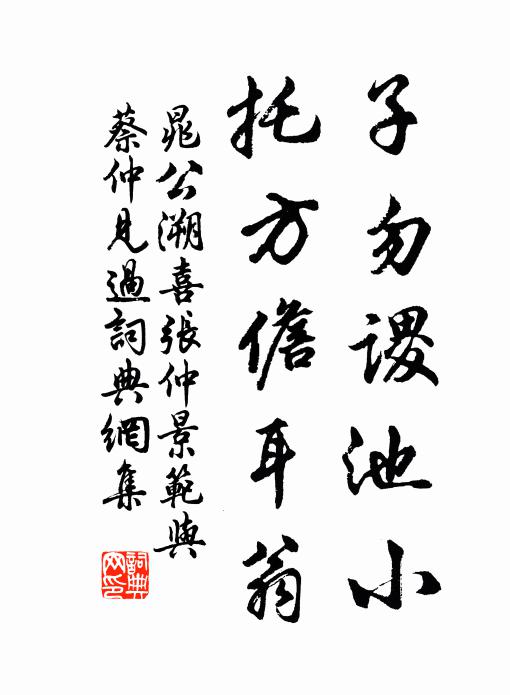 子勿谡池小
托方儋耳翁
晁公溯喜張仲景範與
蔡仲見過詞典網集
詞典
网印